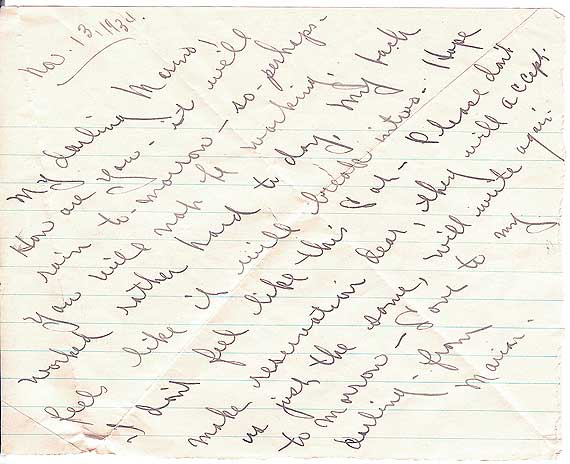 Nov. 13, 1934.
My darling Mamo!
How are you - it will
rain to-morrow - so-perhaps-
You will not be working.
Worked rather hard to day, My back
feels like it will break intwo. Hope
I don't feel like this Sat - Please don't
make reservation dear, they will accept
us just the same, will write again
to morrow - Love to my
darling - from
Marian.